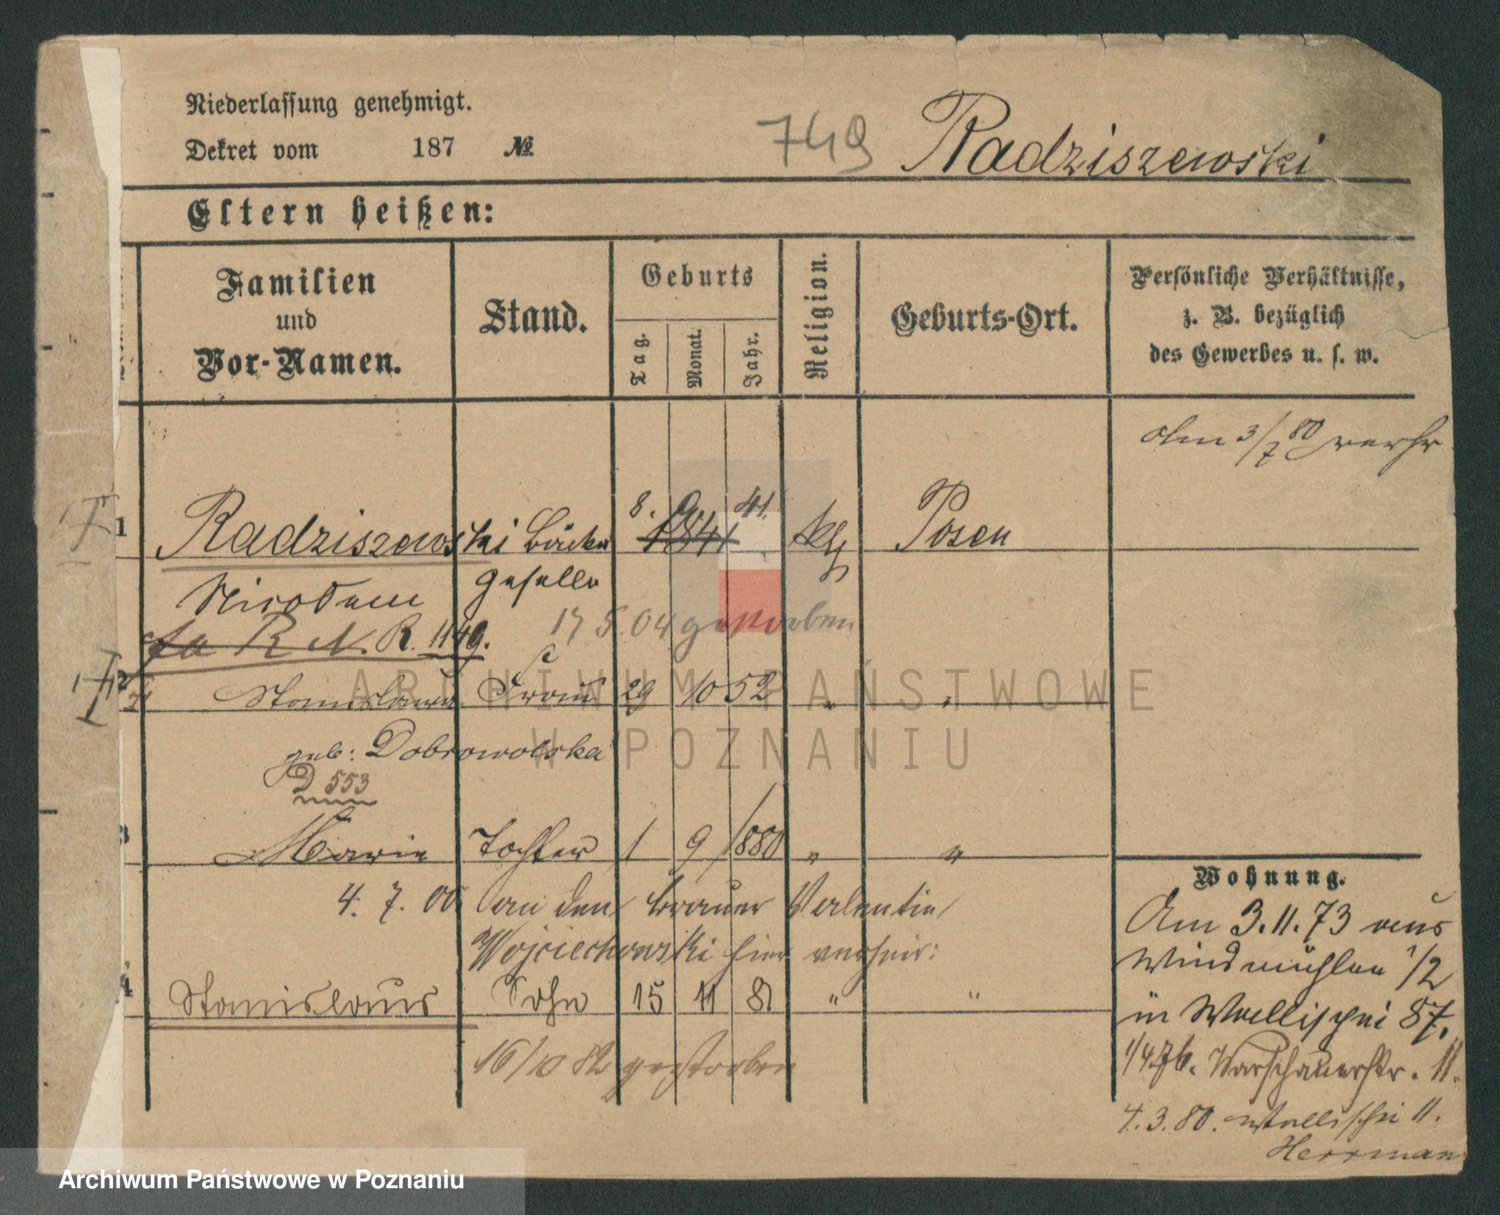 Niederlassung genehmigt.
Dekret vom 187 №
749 Radziszewski
Eltern heißen:
Familien und Vor-Namen.
Stand.
Geburts
Tag.
Monat.
Jahr.
Religion.
Geburts-Ort.
Persönliche Verhältnisse,
z. B. bezüglich
des Gewerbes u. s. w.
Am 3/7 80 verhr
1 Radziszewski Bäcker 8. 9. 41. 1841 kth Posen
Nicodem Geselle
R. 1149.
17 5. 04 gestorben
2 Stanislawa Frau 29 10 52 " "
geb: Dobrowolska
D 553
3 Marie Tochter 1 9 1880 " "
4. 7. 00 an den Brauer Valentin
Wojciechowski hier verheir:
4 Stanislaus Sohn 15 11 81 " "
16/10 82 gestorben
Wohnung.
Am 3.11.73 aus
Windmühlen 1/2
in Wallischei 87.
1/4 76. Warschauerstr. 11.
4.3.80. Wallischei 11.
Herrman
ARCHIWUM PAŃSTWOWE
W POZNANIU
Archiwum Państwowe w Poznaniu